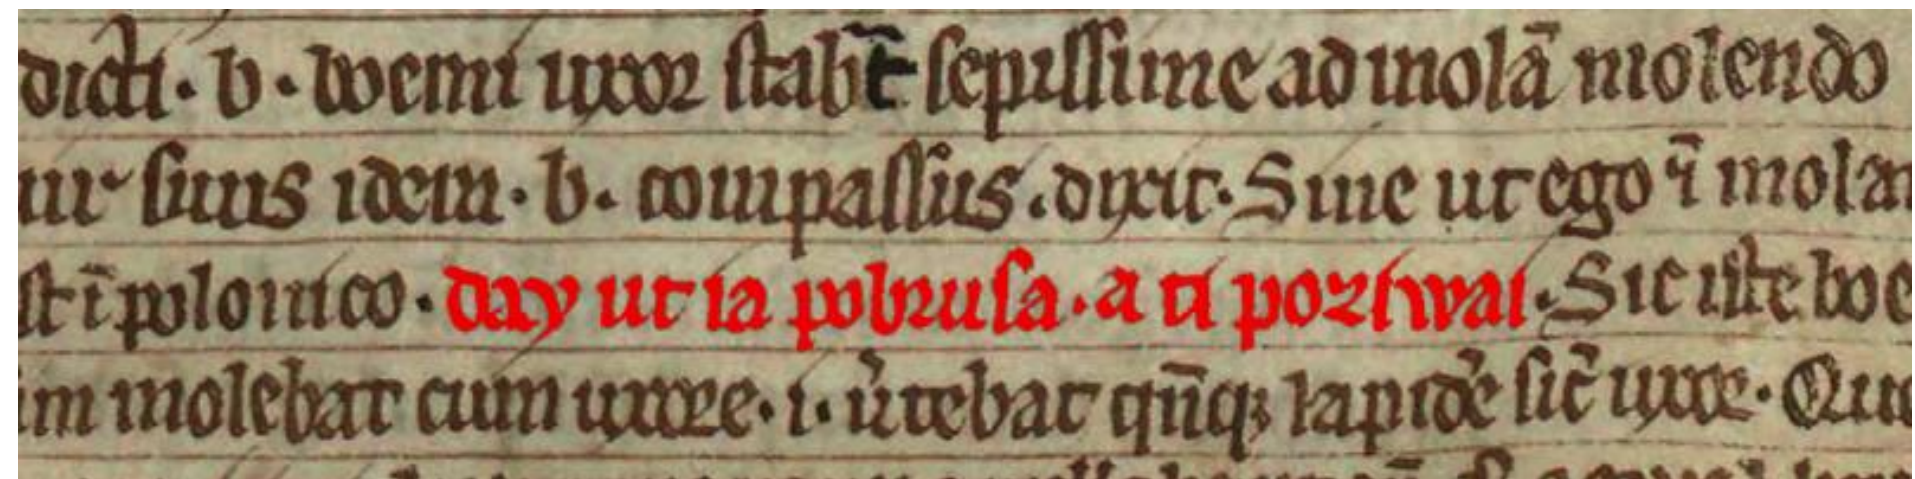 dicti · b · boemi uxor stabat̄ sepissime ad molā molendo
ur suus idem · b · compassus · dixit · Sine ut ego ī molam
st ī polonico · day ut ia pobrusa · a ti poziwai · Sic iste boe
im molebat cum uxore · i · ũtebat qn̄q; lapidē sic̄ uxor · Quo